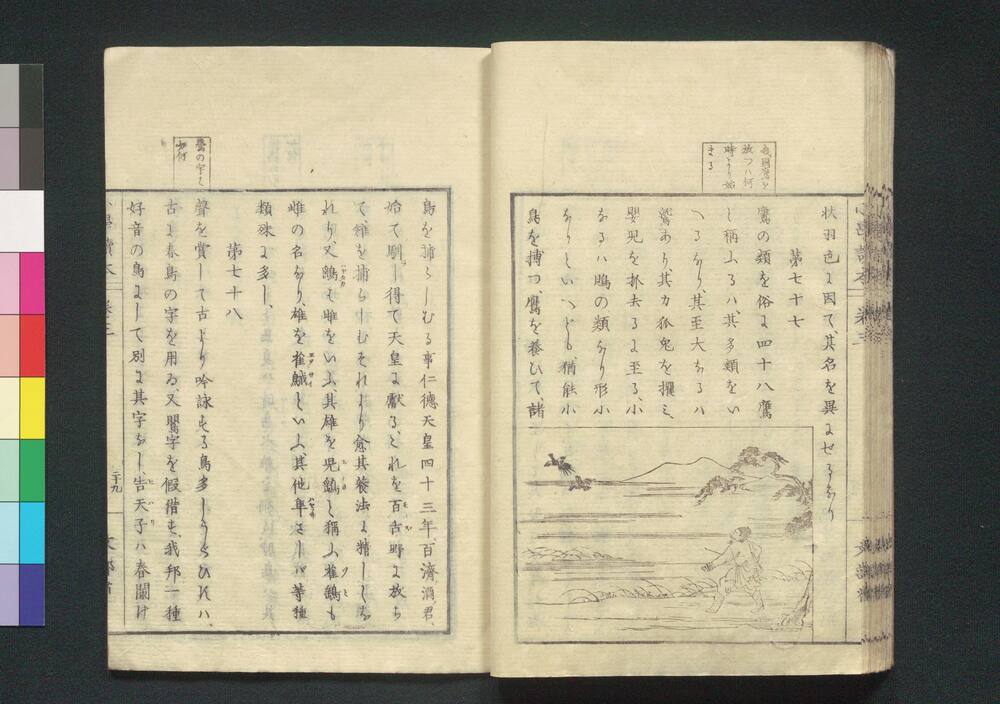 我國鷹を
放つハ何
時より始
まる
状羽色に因て、其名を異にせるなり
第七十七
鷹の類を俗に四十八鷹
と稱ふるハ、其多類をい
へるなり、其至大なるハ
鷲あり、其力狐兎を攫ミ、
嬰児を抓去るに至る、小
なるハ鵙の類なり形小
なりといへども、猶能小
鳥を搏つ、鷹を養ひて、諸
鶯の字ハ
如何
鳥を捕らしむる事仁德天皇四十三年、百濟酒君、
始て馴し得て天皇に獻る、これを百舌野に放ち
て、雉を捕らしむそれより愈其養法に精しくな
れり、又鷂も雌をいふ、其雄を兄鷂と稱ふ雀鷂も
雌の名なり、雄を雀𪀚といふ、其他隼さしバ等種
類殊に多し、
第七十八
聲を賞して古より吟詠する鳥多しうぐひすハ、
古に春鳥の字を用ゐ、又鸎字を假借す、我邦一種
好音の鳥にして別に其字なし、告天子ハ春闌け
二十九